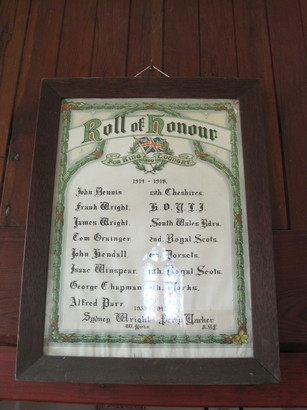 Roll of Honour
For King & Country
1914 - 1918.
John Dennis 13th. Cheshires.
Frank Wright K.O.Y.L.I.
James Wright South Wales Bdrs.
Tom Grainger 2nd Royal Scots.
John Kendall Dorsets.
Isaac Winspear Royal Scots.
George Chapman
Alfred Parr.
Sydney Wright Percy Parker